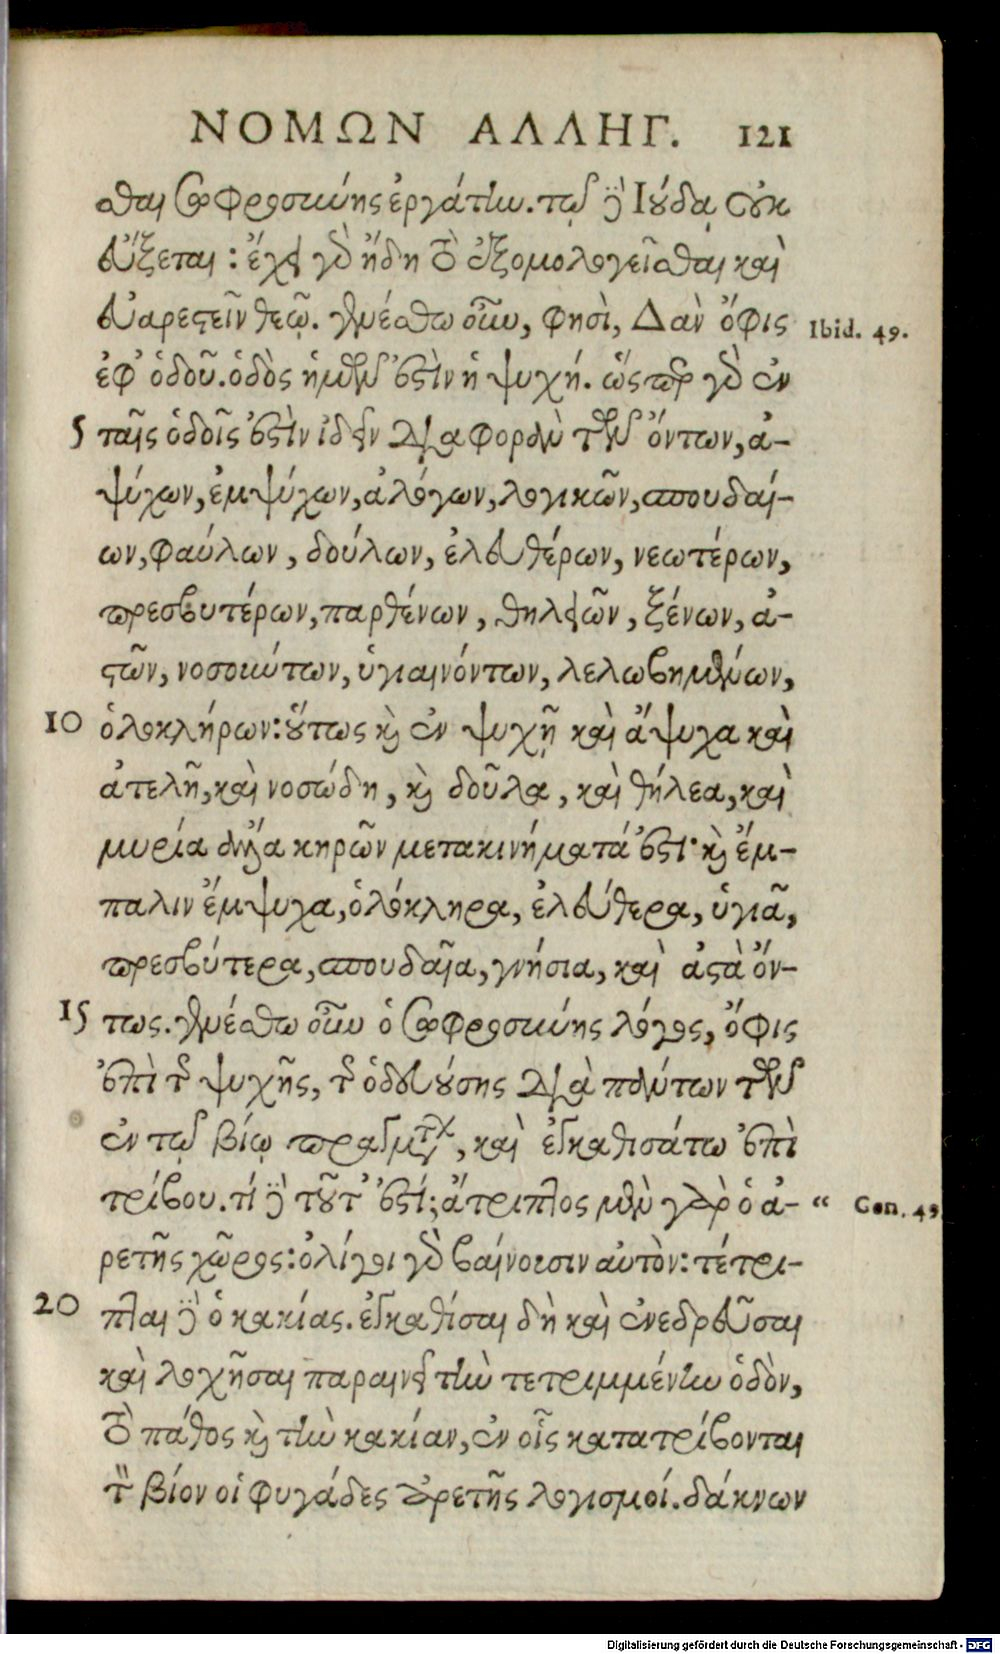 ΝΟΜΩΝ ΑΛΛΗΓ. 121
σθαι σωφροσύνης ἐργάτην. τῷ δὲ Ἰούδᾳ οὐκ
εὔξεται: ἔχει γὰρ ἤδη τὸ ἐξομολογεῖσθαι καὶ
εὐαρεστεῖν θεῷ. γενέσθω οὖν, φησὶ, Δὰν ὄφις Ibid. 49.
ἐφ' ὁδοῦ. ὁδὸς ἡμῶν ἐστὶν ἡ ψυχή. ὥσπερ γὰρ ἐν
5 ταῖς ὁδοῖς ἐστὶν ἰδεῖν διαφορὰν τῶν ὄντων, ἀ-
ψύχων, ἐμψύχων, ἀλόγων, λογικῶν, σπουδαί-
ων, φαύλων, δούλων, ἐλευθέρων, νεωτέρων,
πρεσβυτέρων, παρθένων, θηλειῶν, ξένων, ἀ-
στῶν, νοσούντων, ὑγιαινόντων, λελωβημένων,
10 ὁλοκλήρων: οὕτως καὶ ἐν ψυχῇ καὶ ἄψυχα καὶ
ἀτελῆ, καὶ νοσώδη, καὶ δοῦλα, καὶ θήλεα, καὶ
μυρία ἄλλα κηρῶν μετακινήματά ἐστι· καὶ ἔμ-
παλιν ἔμψυχα, ὁλόκληρα, ἐλεύθερα, ὑγιᾶ,
πρεσβύτερα, σπουδαῖα, γνήσια, καὶ ἀστὰ ὄν-
15 τως. γενέσθω οὖν ὁ σωφροσύνης λόγος, ὄφις
ἐπὶ τῆς ψυχῆς, τῆς ὁδευούσης διὰ πάντων τῶν
ἐν τῷ βίῳ πραγμάτων, καὶ ἐγκαθισάτω ἐπὶ
τρίβου. τί δὲ τοῦτ' ἐστί; ἄτριπτος μὲν γὰρ ὁ ἀ- “ Gen. 49
ρετῆς χῶρος: ὀλίγοι γὰρ βαίνουσιν αὐτὸν: τέτρι-
20 πται δὲ ὁ κακίας. ἐγκαθίσαι δὴ καὶ ἐνεδρεῦσαι
καὶ λοχῆσαι παραινεῖ τὴν τετριμμένην ὁδὸν,
τὸ πάθος καὶ τὴν κακίαν, ἐν οἷς κατατρίβονται
τὸν βίον οἱ φυγάδες ἀρετῆς λογισμοί. δάκνων
Digitalisierung gefördert durch die Deutsche Forschungsgemeinschaft - DFG